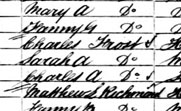 Mary A Do
Fanny G Do
Charles Frost S
Sarah A Do
Charles A S
Matthews Richmond
Fanny Do